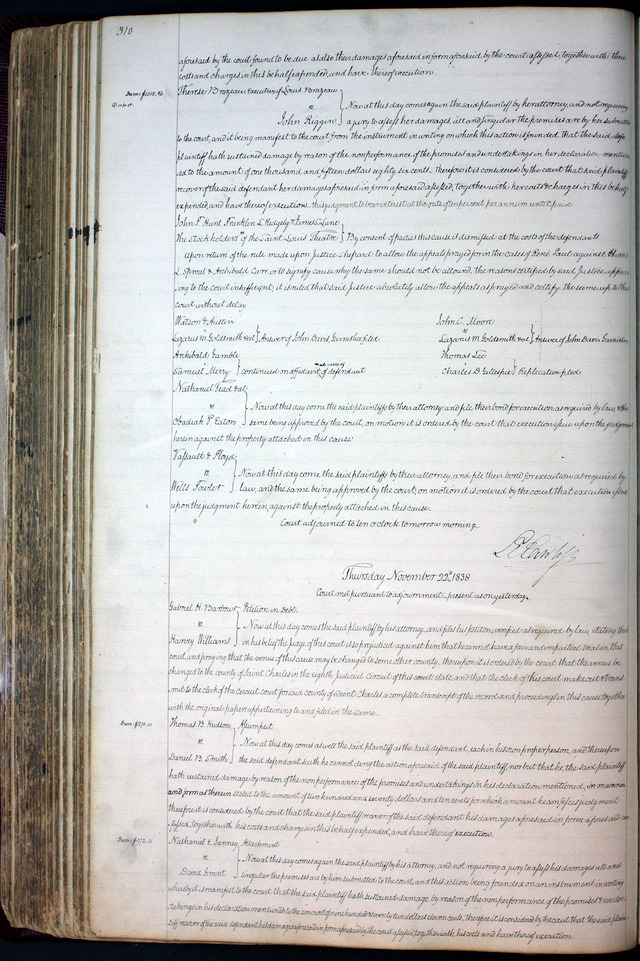 310
aforesaid by the court found to be due as also their damages aforesaid in form aforesaid by the court assessed, together with their
costs and charges in this behalf expended, and have thereof execution.
Therese Brazeau, Executrix of Louis Brazeau
vs
John Riggin
Now at this day comes again the said plaintiff by her attorney, and not requiring
a jury to assess her damages, all and singular the premises are by her submitted
to the court, and it being manifest to the court from the instrument in writing on which this action is founded, that the said
plaintiff hath sustained damage by reason of the nonperformance of the promises and undertakings in her declaration mention
ed to the amount of one thousand and fifteen dollars eighty six cents, therefore it is considered by the court that said plaintiff
recover of the said defendant her damages aforesaid in form aforesaid assessed, together with her costs & charges in this behalf
expended, and have thereof execution. this judgment to bear interest at the rate of ten per cent per annum until paid
John F Hunt, Franklin L Ridgely & James Lane
vs
The Stockholders of the Saint Louis Theatre
By consent of parties this cause is dismissed at the costs of the defendants
Upon return of the rule made upon Justice Shepard to allow the appeals prayed for in the cases of René Paul against
L. Sproul & Archibald Carr, or to signify cause why the same should not be allowed, the reasons certified by said Justice appear
ing to the court insufficient, it is ruled that said Justice absolutely allow the appeals as prayed and certify the same up to this
court without delay
Watson & Austin
vs
Lazarus M Goldsmith et al
Answer of John Davis Garnishee filed
John C. Moore
vs
Lazarus M Goldsmith et al
Answer of John Davis Garnishee
Archibald Gamble
vs
Samuel Merry
continued on affidavit & at costs of defendant
Thomas Lee
vs
Charles D Gillespie
Replication filed
Nathaniel Tead et al
vs
Obadiah P Eaton
Now at this day come the said plaintiffs by their attorney and file their bond for execution as required by law, & the
same being approved by the court, on motion it is ordered by the court that execution issue upon the judgment
herein against the property attached in this cause
Vassault & Floyd
vs
Wells Fowler
Now at this day come the said plaintiffs by their attorney, and file their bond for execution as required by
law, and the same being approved by the court, on motion it is ordered by the court that execution issue
upon the judgment herein, against the property attached in this cause.
Court adjourned to ten o'clock tomorrow morning
Thursday November 22d 1838
Court met pursuant to adjournment, present as on yesterday
Gabriel H. Barbour
vs
Harvey Williams
Petition in Debt
Now at this day comes the said plaintiff by his attorney, and files his petition, verified as required by law, stating that
in his belief the Judge of this court is so prejudiced against him that he cannot have a fair and impartial trial in this
court, and praying that the venue of this cause may be changed to some other county, thereupon it is ordered by the court that the venue be
changed to the county of Saint Charles in the eighth Judicial Circuit of this court state, and that the clerk of this court make out & trans
mit to the clerk of the circuit court for said county of Saint Charles a complete transcript of the record and proceedings in this cause, together
with the original papers appertaining to and filed in the same.
Thomas B. Hudson
vs
Daniel B. Smith
Assumpsit
Now at this day comes as well the said plaintiff as the said defendant, each in his own proper person, and thereupon
the said defendant saith he cannot deny the action aforesaid of the said plaintiff, nor but that he, the said plaintiff
hath sustained damage by reason of the nonperformance of the promises and undertakings in his declaration mentioned, in manner
and form as therein stated to the amount of two hundred and seventy dollars and ten cents for which amount he confesses judgment
therefore it is considered by the court that the said plaintiff recover of the said defendant his damages aforesaid in form aforesaid con
fessed, together with his costs and charges in this behalf expended, and have thereof execution.
Nathaniel E. Janney
vs
David Grant
Attachment
Now at this day comes again the said plaintiff by his attorney, and not requiring a jury to assess his damages, all and
singular the premises are by him submitted to the court, and this action being founded on an instrument in writing
whereby it is manifest to the court that the said plaintiff hath sustained damage by reason of the nonperformance of the promises & under
takings in his declaration mentioned to the amount of nine hundred & seventy two dollars eleven cents, therefore it is considered by the court that the said plain
tiff recover of the said defendant his damages aforesaid in form aforesaid by the court assessed, together with his costs and have thereof execution